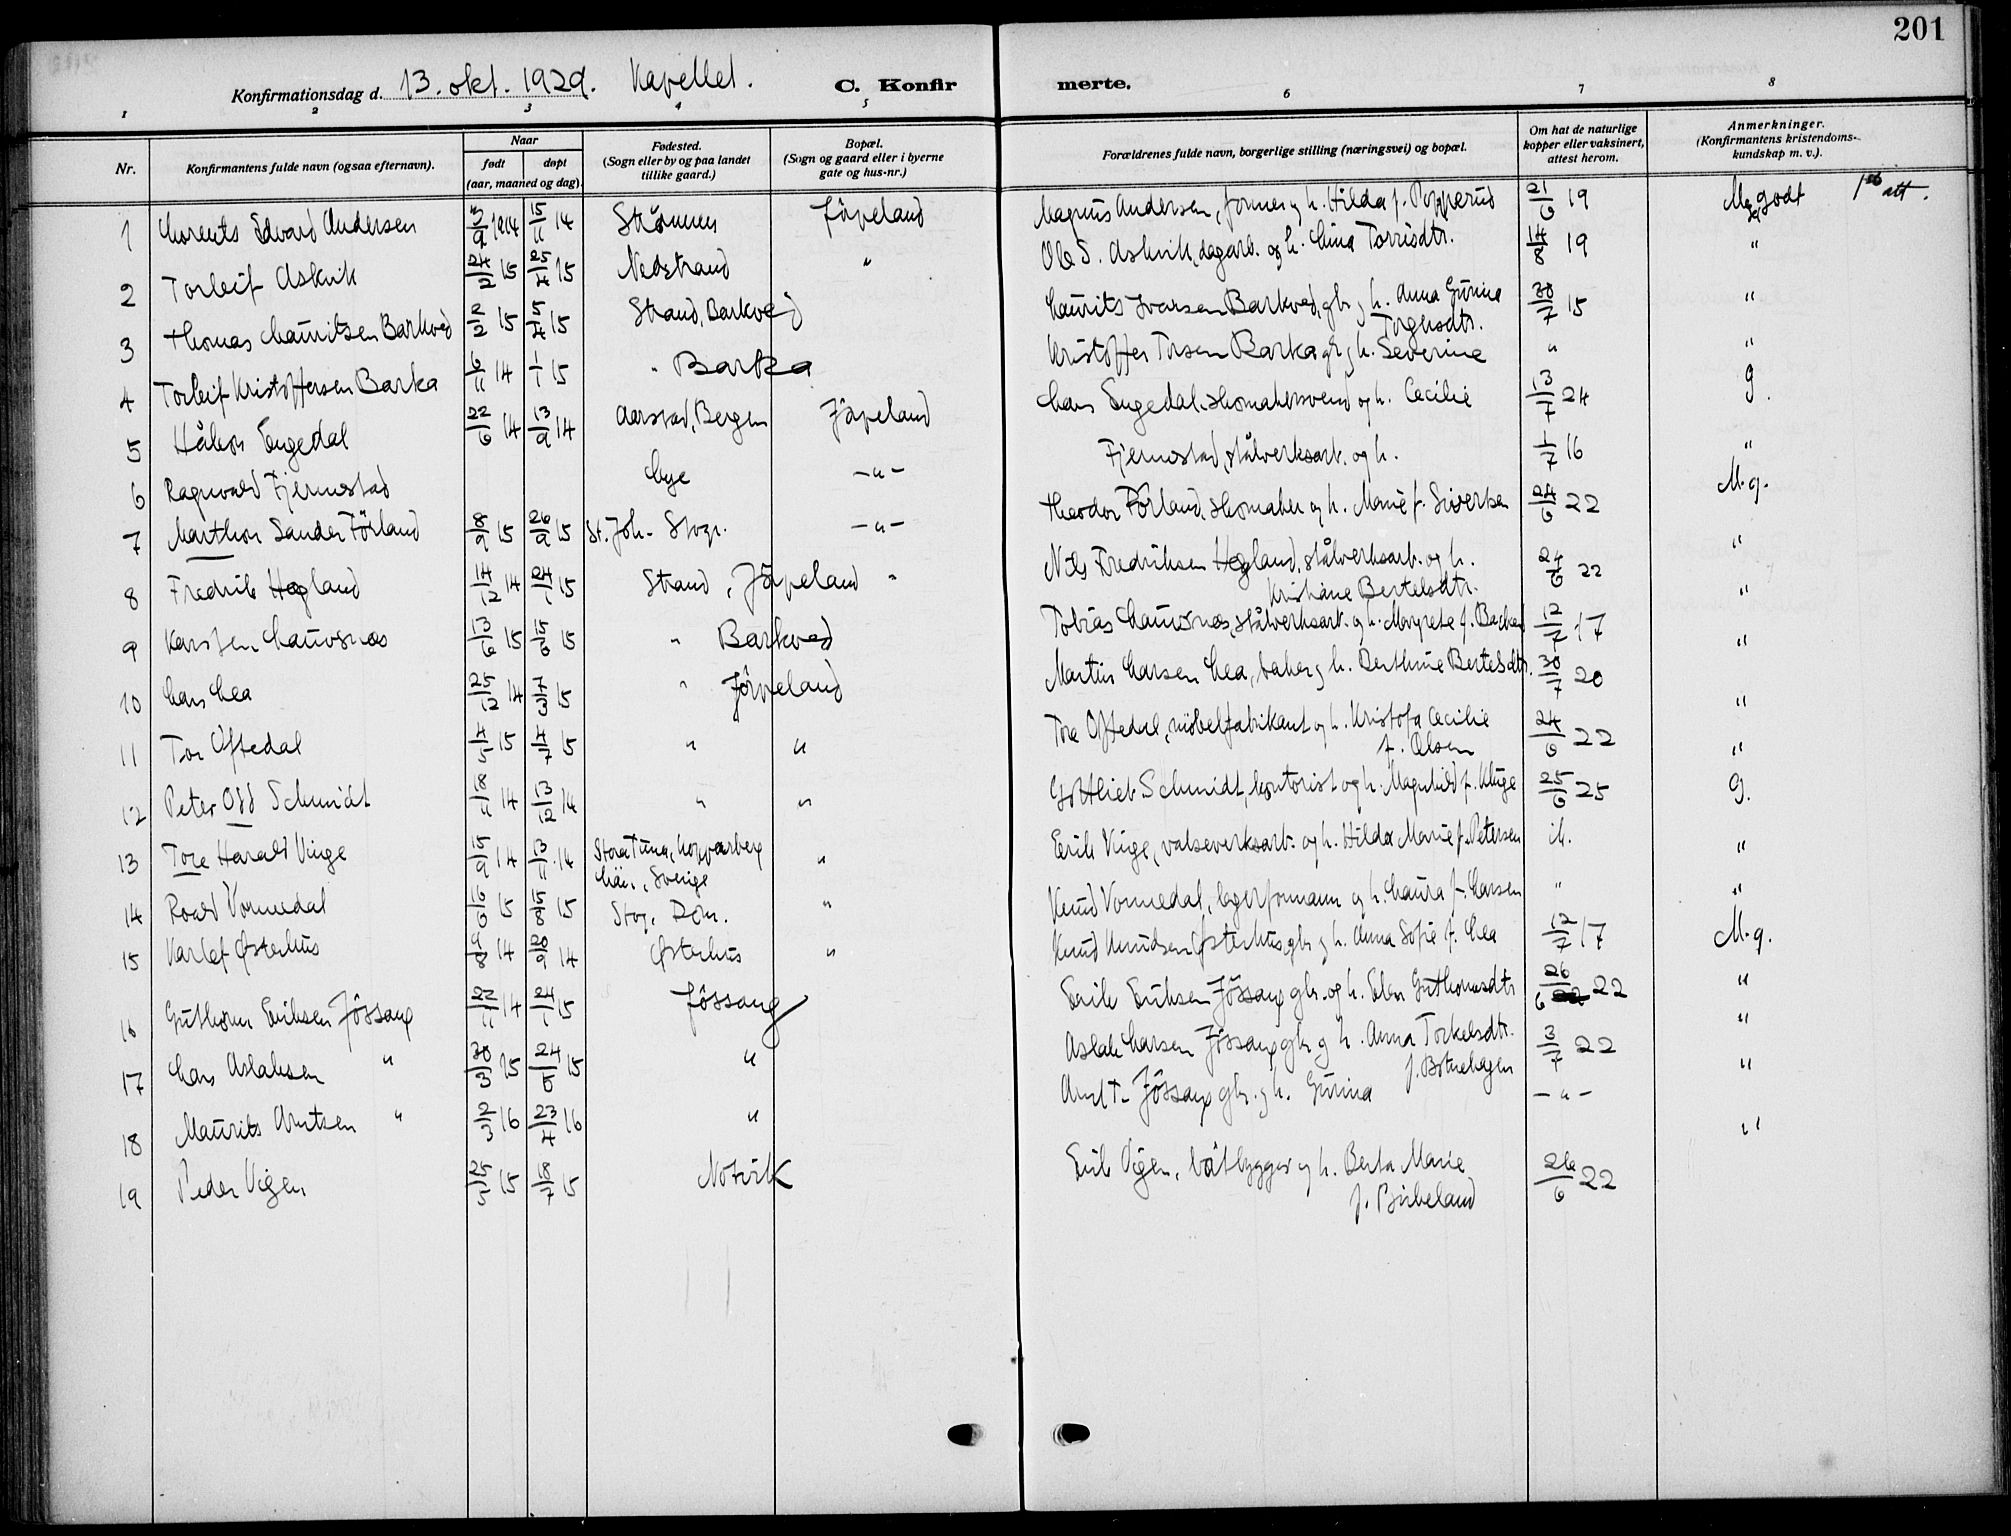 201
Konfirmationsdag d. 13. okt. 1929. Kapellet. C. Konfirmerte.
1 2 3 4 5 6 7 8
Nr. Konfirmantens fulde navn (ogsaa efternavn). Naar født døpt (aar, maaned og dag). Fødested. (Sogn eller by og paa landet tillike gaard.) Bopæl. (Sogn og gaard eller i byerne gate og hus-nr.) Forældrenes fulde navn, borgerlige stilling (næringsvei) og bopæl. Om hat de naturlige kopper eller vaksinert, attest herom. Anmerkninger. (Konfirmantens kristendoms-kundskap m. v.).
1 Lorents Edvard Andersen 3/9 1914 15/11 14 Strømmen Jørpeland Magnus Andersen, former og h. Hilda f. Popperud 21/6 19 Meg. godt att.
2 Torleif Askvik 24/2 15 25/4 15 Nedstrand " Ole S. Askvik, dagarb. og h. Lina Torrisdtr. 14/8 19 "
3 Thomas Lauritsen Barkved 2/2 15 5/4 15 Strand, Barkved Laurits Ivarsen Barkved, gbr. og h. Anna Gurine 30/7 15 "
4 Torleif Kristoffersen Barka 6/11 14 1/1 15 " Barka Kristoffer Torsen Barka gbr. og h. Severine " "
5 Håkon Engedal 22/6 14 13/9 14 Aarstad, Bergen Jørpeland Lars Engedal, skomakersvend og h. Cecilie 13/7 24 g.
6 Ragnvald Fjermestad Lye -"- Fjermestad, stålverksarb. og h. 1/7 16 "
7 Marthon Sander Førland 8/9 15 26/9 15 St. Joh. Stvgr. -"- Theodor Førland, skomaker og h. Marie f. Sivertsen 24/6 22 M.g.
8 Fredrik Hegland 14/12 14 24/1 15 Strand, Jørpeland " Nils Fredriksen Hegland, stålverksarb. og h.
Kristiane Bertelsdtr. 24/6 22 "
9 Karsten Lauvsnæs 13/6 15 15 " Barkved Tobias Lauvsnæs, stålverksarb. og h. Margrete f. 12/7 17 "
10 Lars Lea 25/12 14 15 " Jørpeland Martin Larsen Lea, baker og h. Berthine Bertelsdtr. 30/7 20 "
11 Tor Oftedal 4/5 15 4/7 15 " " Tore Oftedal, møbelfabrikant og h. Kristofa Cecilie
f. Olsen 24/6 22 "
12 Peter Odd Schmidt 18/11 14 13/12 14 " " Gottlieb Schmidt, kontorist og h. Magnhild f. Kluge 25/6 25 "
13 Tore Harald Vinge 15/9 14 13/11 14 Stora Tuna, Kopparberg
Län., Sverige " Erik Vinge, valseverksarb. og h. Hilda Marie f. Petersen ik. g.
14 Roald Vormedal 15 15 Stvg. Dom. " Knud Vormedal, lagerformann og h. Laura f. Larsen " "
15 Karlef Østerhus 14 14 Østerhus " Knud Knudsen Østerhus, gbr. og h. Anna Sofie f. Lea 12/7 17 M.g.
16 Guthorm Eriksen Jøssang 22/11 14 24/1 15 Jøssang Erik Eriksen Jøssang gbr. og h. Elen Guthormsdtr. 26/6 22 "
17 Lars Aslaksen " 30/3 15 24/5 15 " Aslak Larsen Jøssang gbr. og h. Anna Torkelsdtr.
f. Botnehagen 3/7 22 "
18 Maurits Arntsen " 2/3 16 23/4 16 " Arnt T. Jøssang gbr. og h. Gurina -"- "
19 Peder Vigen 25/5 15 18/7 15 Notvik Erik Vigen, båtbygger og h. Berta Marie
f. Birkeland 26/6 22 "